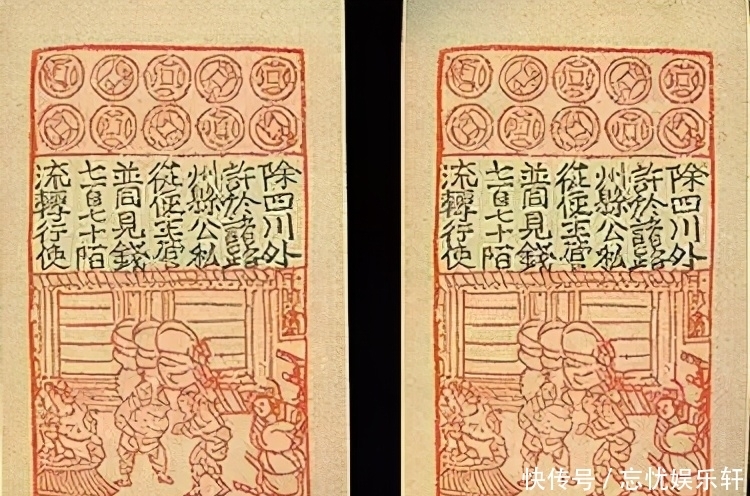 除四川外
許於諸路
州縣公私
從便主管
並同見錢
七百七十陌
流轉行使
除四川外
許於諸路
州縣公私
從便主管
並同見錢
七百七十陌
流轉行使
快传号／忘忧娱乐轩